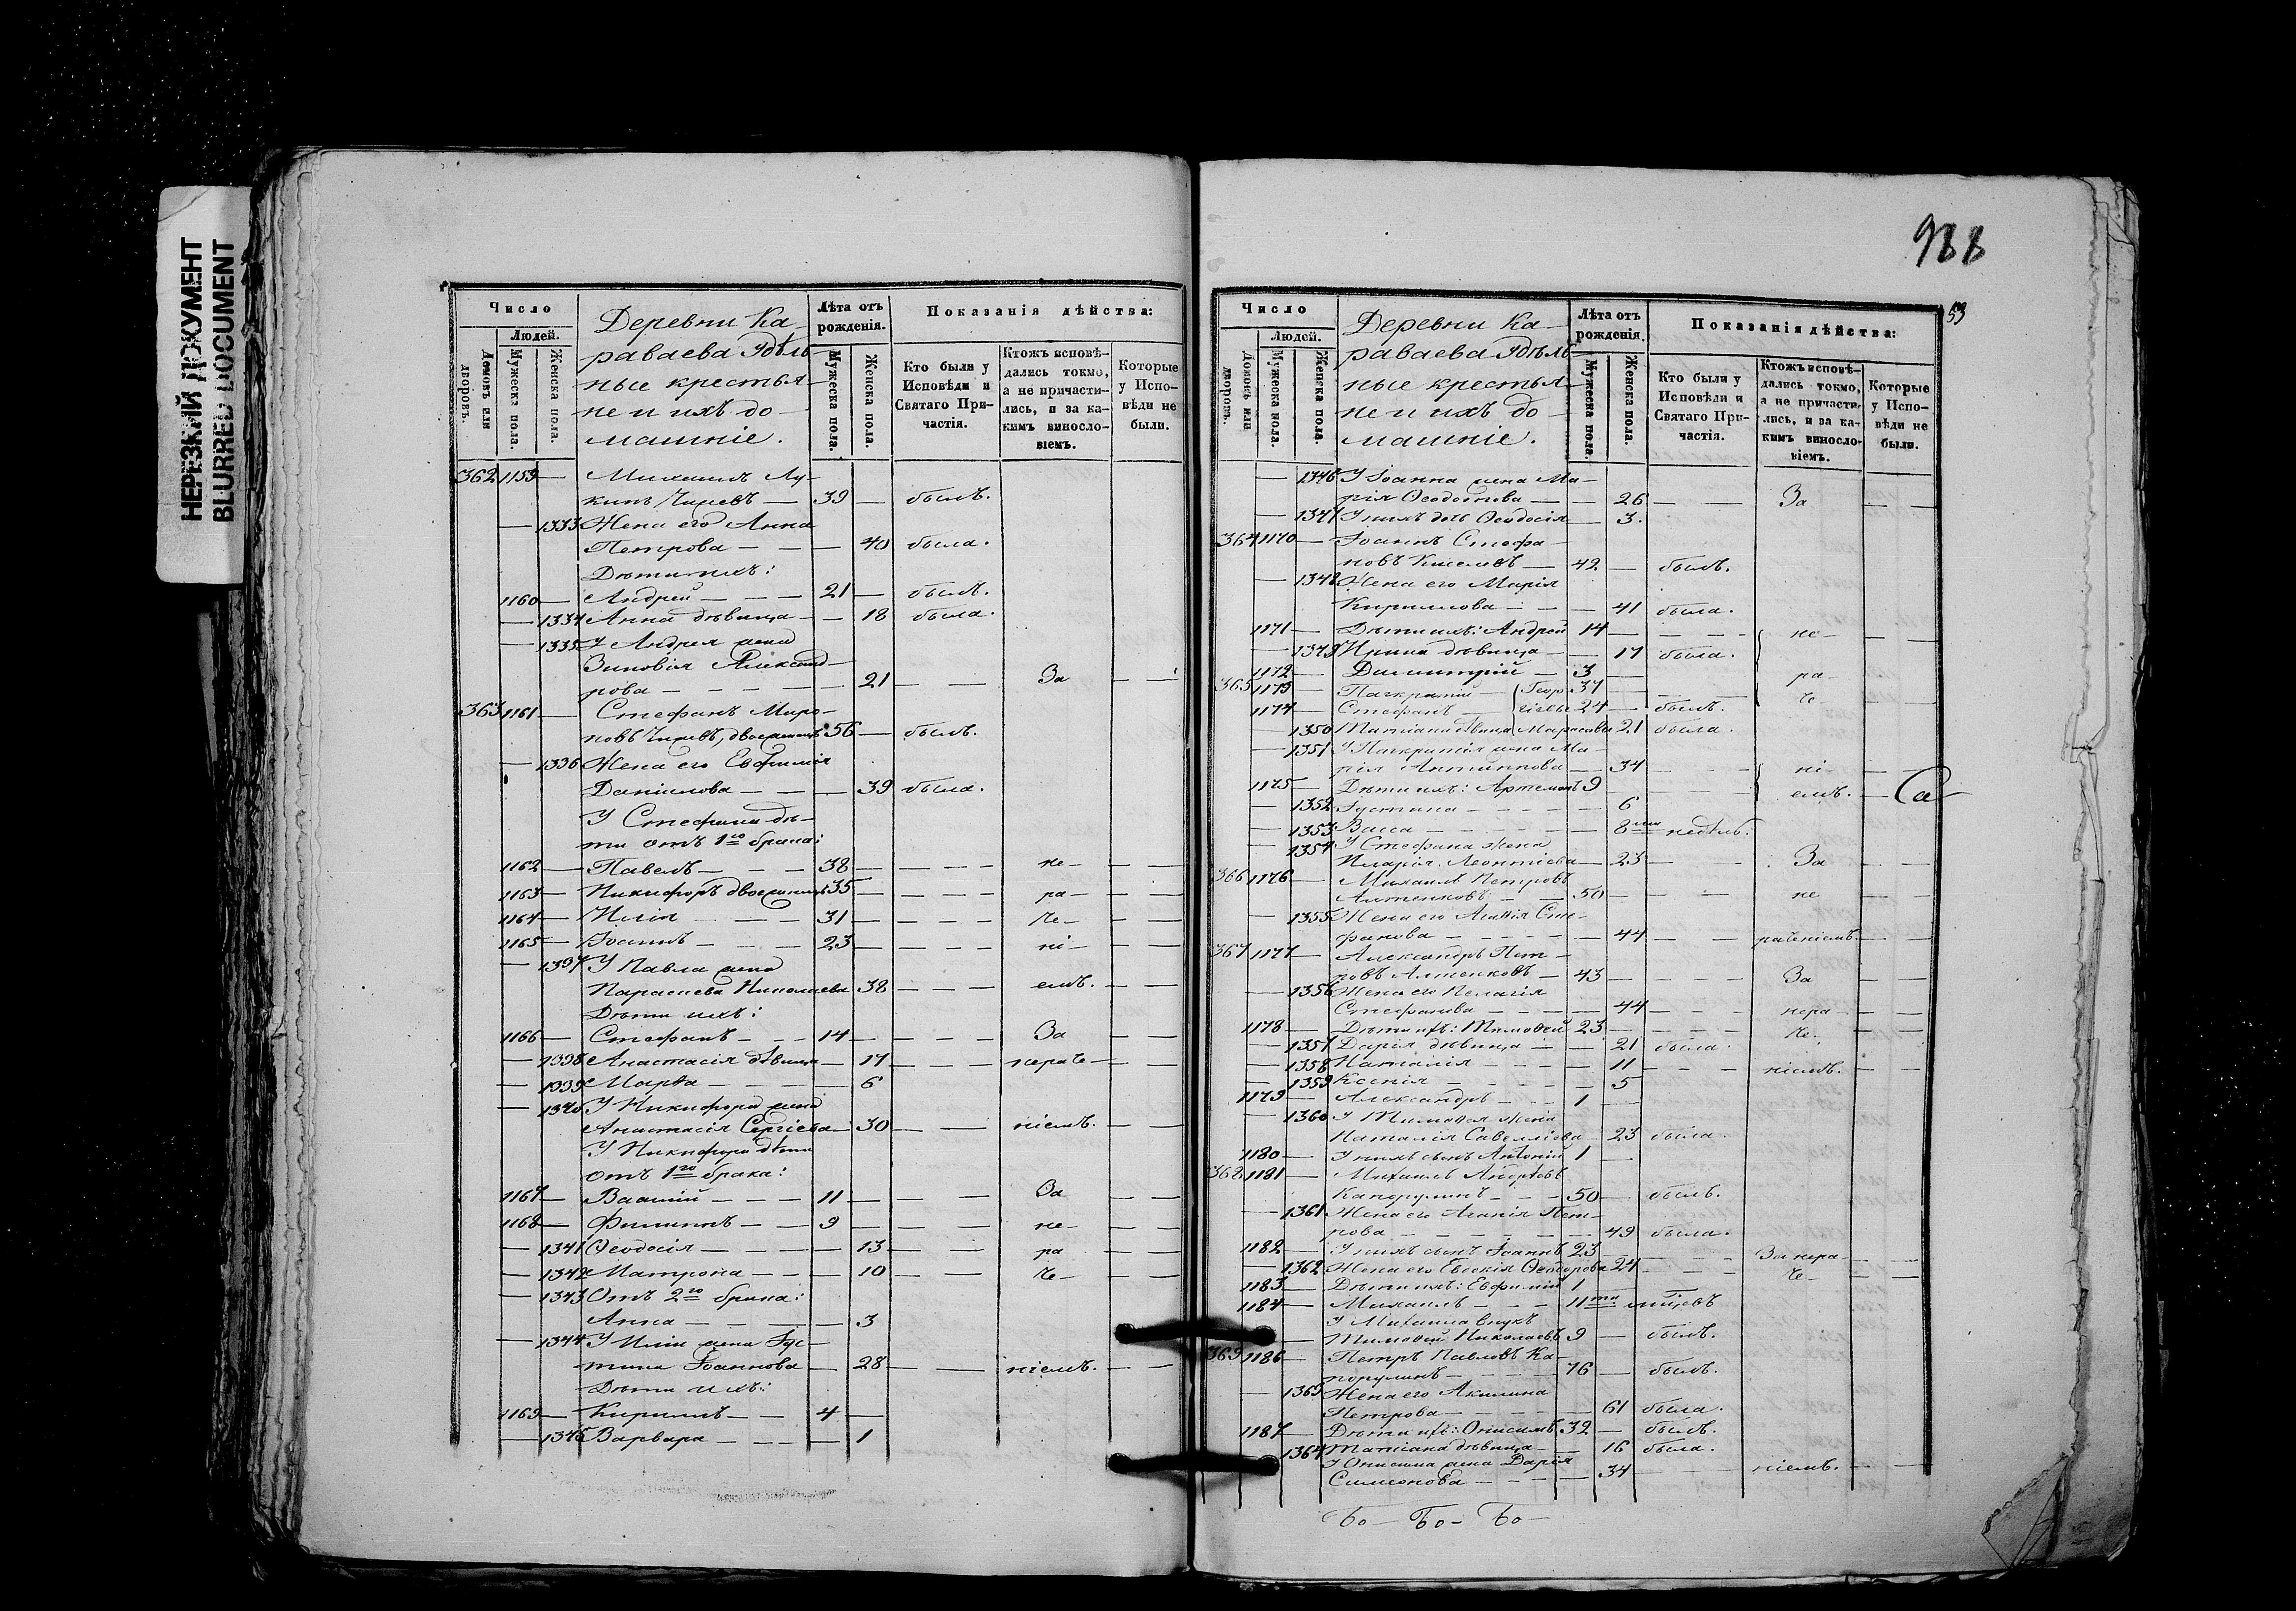 НЕРЕЗКИЙ ДОКУМЕНТ
BLURRED DOCUMENT
Число
Людей.
Домовъ или дворовъ.
Мужеска пола.
Женска пола.
Деревни Ка-
раваева Удѣль-
ные крестья-
не и ихъ до-
машніе.
Лѣта отъ рожденія.
Мужеска пола.
Женска пола.
Показанія дѣйства:
Кто были у Исповѣди и Святаго При-частія.
Ктожъ исповѣ-дались токмо, а не причасти-лись, и за ка-кимъ виносло-віемъ.
Которые у Испо-вѣди не были.
362 1159 — Михаилъ Лу-
кинъ — 39 — былъ.
— 1333 Жена его Анна
Петрова — — — 40 была.
Дѣти ихъ:
1160 — Андрей — — — 21 — былъ.
— 1334 Анна дѣвица — — 18 была.
— 1335 У Андрея жена
Зиновія Александ-
рова — — — — 21 — — За — —
363 1161 — Стефанъ Миро-
новъ двоеженецъ 56 — былъ.
— 1336 Жена его Евфимія
Даніилова — — — 39 была.
У Стефана дѣ-
ти отъ 1го брака:
1162 — Павелъ — — — 38 — — — — не — — —
1163 — Никифоръ двоеженецъ 35 — — — — ра — — —
1164 — Илія — — — 31 — — — — че — — —
1165 — Іоаннъ — — — 23 — — — — ні — — —
— 1337 У Павла жена
Параскева Николаева 38 — — — емъ. — —
Дѣти ихъ:
1166 — Стефанъ — — — 14 — — — — За — —
— 1338 Анастасія дѣвица — 17 — — — нераче — — —
— 1339 Марѳа — — — — 6
— 1340 У Никифора жена
Анастасія Сергіева — 30 — — ніемъ. — —
У Никифора дѣти
отъ 1го брака:
1167 — Василій — — — 11 — — — За — —
1168 — Филиппъ — — 9 — — — не — — —
— 1341 Ѳеодосія — — — — 13 — — ра — — —
— 1342 Матрона — — — 10 — — че — — —
— 1343 Отъ 2го брака:
Анна — — — — 3
— 1344 У Иліи жена Іус-
тина Іоаннова — 28 — — ніемъ. — —
Дѣти ихъ:
1169 — Кириллъ — — 4 —
— 1345 Варвара — — — — 1
988
53
Число
Людей.
Домовъ или дворовъ.
Мужеска пола.
Женска пола.
Деревни Ка-
раваева Удѣль-
ные крестья-
не и ихъ до-
машніе.
Лѣта отъ рожденія.
Мужеска пола.
Женска пола.
Показанія дѣйства:
Кто были у Исповѣди и Святаго При-частія.
Ктожъ исповѣ-дались токмо, а не причасти-лись, и за ка-кимъ виносло-віемъ.
Которые у Испо-вѣди не были.
— 1346 У Іоанна жена Ма-
рія Ѳеодотова — — 26 — — За — —
— 1347 У нихъ дочь Ѳеодосія — 3.
364 1170 — Іоаннъ Стефа-
новъ Киселевъ — 42 — былъ.
— 1348 Жена его Марія
Кириллова — — — 41 была.
1171 — Дѣти ихъ: Андрей 14 — — — не — — —
— 1349 Ирина дѣвица — — 17 была.
1172 — Димитрій — 3 — ра —
365 1173 — Панкратій — Геор- 37 — — — че — —
1174 — Стефанъ — гіевы 24 — былъ.
— 1350 Татіана дѣвица 21 была.
— 1351 У Панкратія жена Ма-
рія Антипова — 34 — — ні — — —
1175 — Дѣти ихъ: Артемонъ 9 — — — емъ. — Са
— 1352 Іустина — — — — 6
— 1353 Васса — — — — 8ми недѣль.
— 1354 У Стефана жена
Иларія Леонтіева — 23 — — За — —
366 1176 — Михаилъ Петровъ
50 — — — не — —
— 1355 Жена его Агаѳія Сте-
фанова — — — — 44 — — раченіемъ. — —
367 1177 — Александръ Пет-
ровъ 43 — — — За — —
— 1356 Жена его Пелагія
Стефанова — — — 44 — — нера — —
1178 — Дѣти ихъ: Тимоѳей 23 — — — че — —
— 1357 Дарія дѣвица — — 21 была.
— 1358 Наталія — — — 11 — — — ніемъ. — —
— 1359 Ксенія — — — — 5
1179 — Александръ — — 1 —
— 1360 У Тимоѳея жена
Наталія Савелліева — 23 была.
1180 — У нихъ сынъ Антоній 1 —
368 1181 — Михаилъ Андреевъ
50 — былъ.
— 1361 Жена его Агапія Пет-
рова — — — — 49 была.
1182 — У нихъ сынъ Іоаннъ 23 — — — За нера — —
— 1362 Жена его Евдокія Ѳеодорова 24 — — че — — —
1183 — Дѣти ихъ: Евфимій 1
1184 — Михаилъ — — — 11ти мѣсяцевъ
У Михаила внукъ
Тимоѳей Николаевъ 9 — былъ.
369 1186 — Петръ Павловъ Ка-
76 — былъ.
— 1363 Жена его Акилина
Петрова — — — — 61 была.
1187 — Дѣти ихъ: Онисимъ 32 — былъ.
— 1364 Татіана дѣвица — — 16 была.
У Онисима жена Дарія
Симеонова — — — — 34 — — ніемъ. — —
Бо — Бо — Бо —